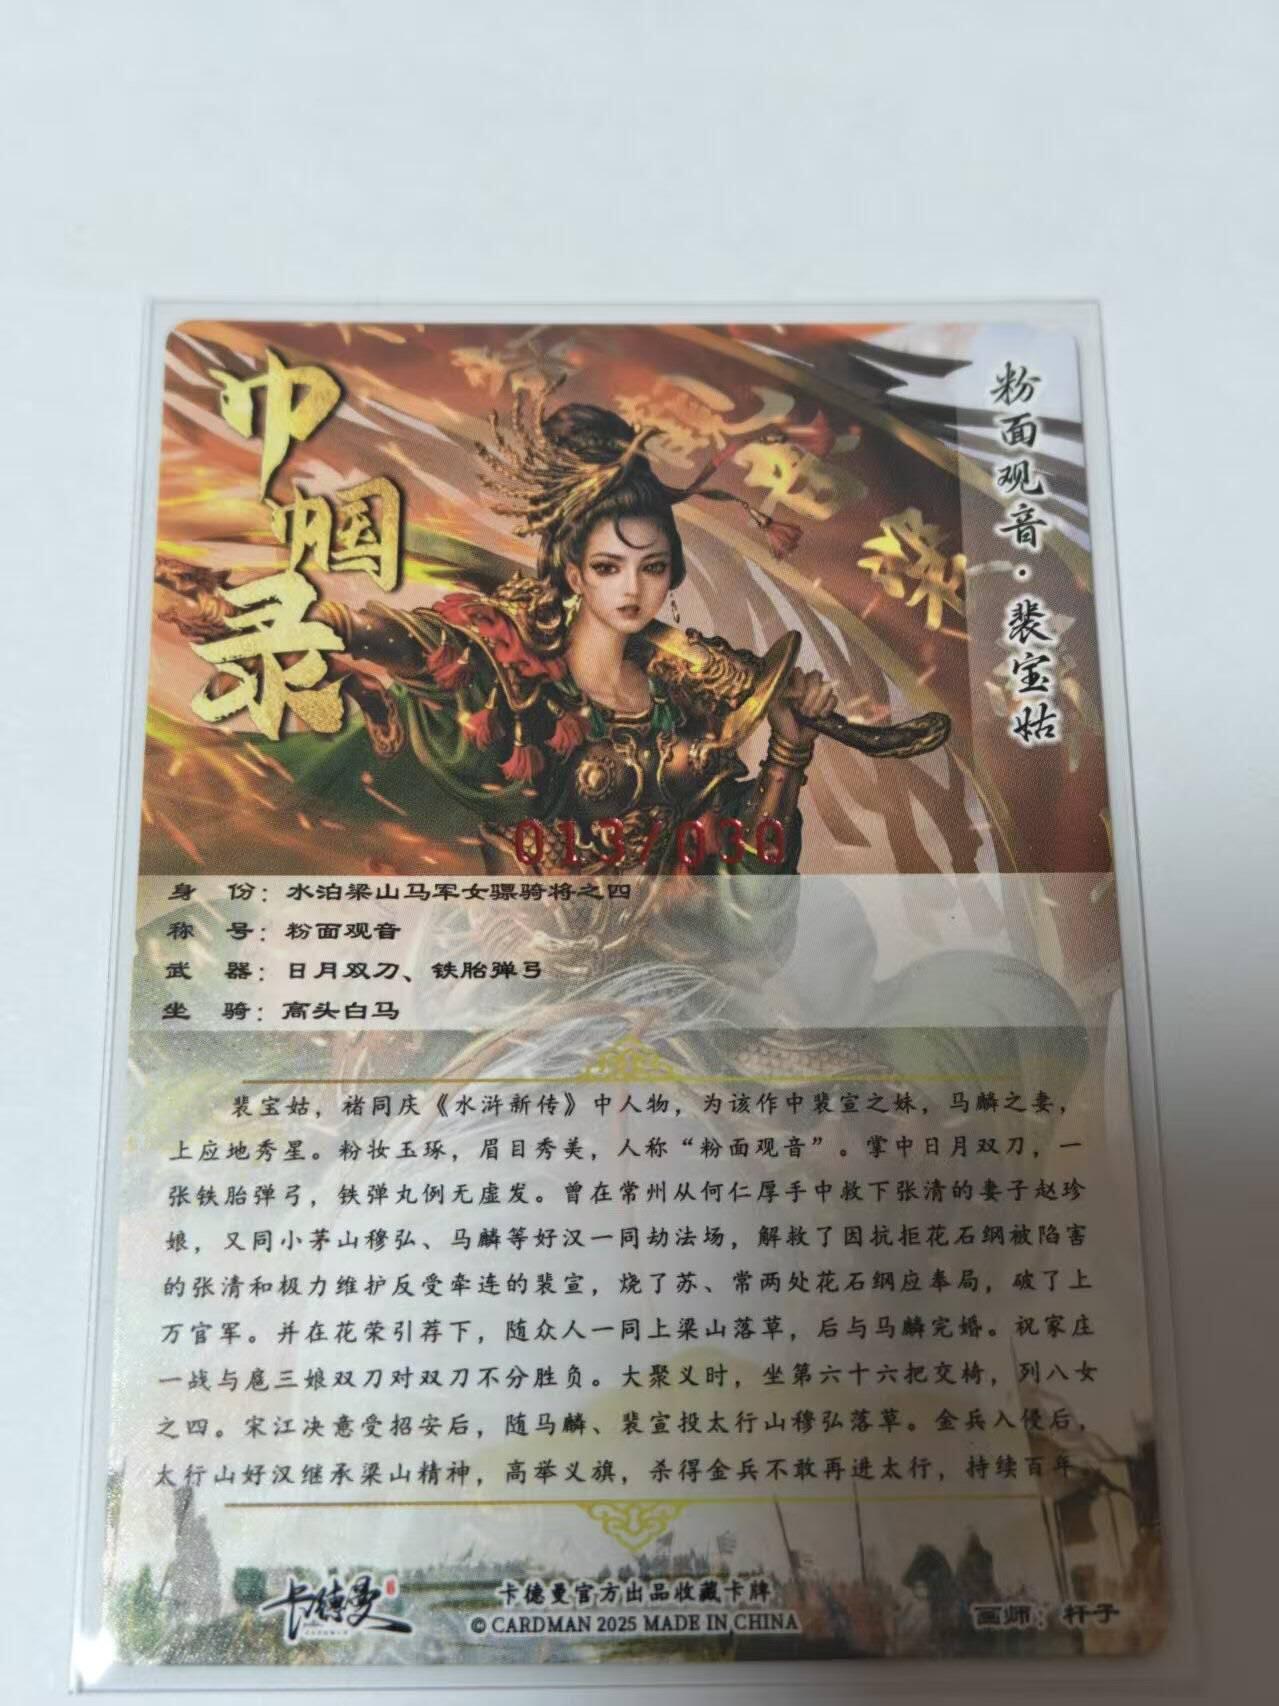 巾帼录
粉面观音·裴宝姑
013/030
身 份：水泊梁山马军女骠骑将之四
称 号：粉面观音
武 器：日月双刀、铁胎弹弓
坐 骑：高头白马
裴宝姑，褚同庆《水浒新传》中人物，为该作中裴宣之妹，马麟之妻，
上应地秀星。粉妆玉琢，眉目秀美，人称“粉面观音”。掌中日月双刀，一
张铁胎弹弓，铁弹丸例无虚发。曾在常州从何仁厚手中救下张清的妻子赵珍
娘，又同小茅山穆弘、马麟等好汉一同劫法场，解救了因抗拒花石纲被陷害
的张清和极力维护反受牵连的裴宣，烧了苏、常两处花石纲应奉局，破了上
万官军。并在花荣引荐下，随众人一同上梁山落草，后与马麟完婚。祝家庄
一战与扈三娘双刀对双刀不分胜负。大聚义时，坐第六十六把交椅，列八女
之四。宋江决意受招安后，随马麟、裴宣投太行山穆弘落草。金兵入侵后，
太行山好汉继承梁山精神，高举义旗，杀得金兵不敢再进太行，持续百年。
卡德曼
卡德曼官方出品收藏卡牌
© CARDMAN 2025 MADE IN CHINA
画师：轩子